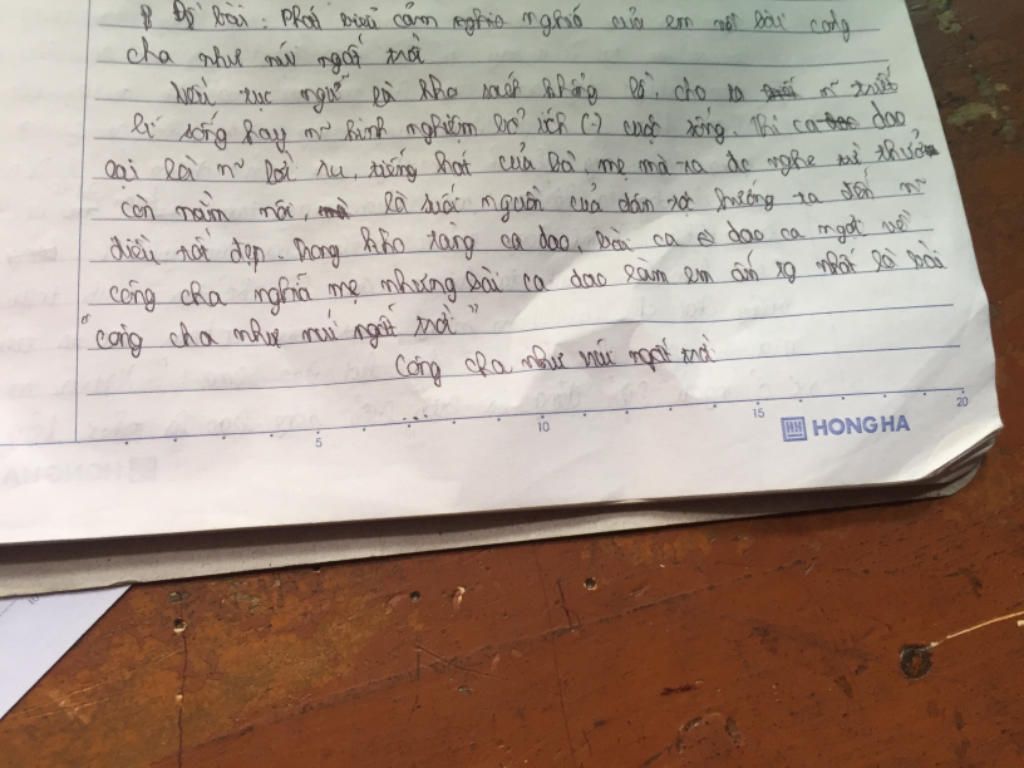 Đề bài: Phát biểu cảm nghĩa nghĩ của em về bài công
cha như núi ngất trời
Nếu tục ngữ là kho sách khổng lồ, cho ta n~ triết
lí sống hay n~ kinh nghiệm bổ ích (-) cuộc sống. Thì ca dao
lại là n~ lời ru, tiếng hát của bà, mẹ mà ta đc nghe từ thuở
còn nằm nôi, là cuội nguồn của dân tộc hướng ta đến n~
điều tốt đẹp. Trong kho tàng ca dao, bài ca dao ca ngợi về
công cha nghĩa mẹ nhưng bài ca dao làm em ấn tg nhất là bài
"công cha như núi ngất trời"
Công cha như núi ngất trời
5 10 15 20
HH HONG HA